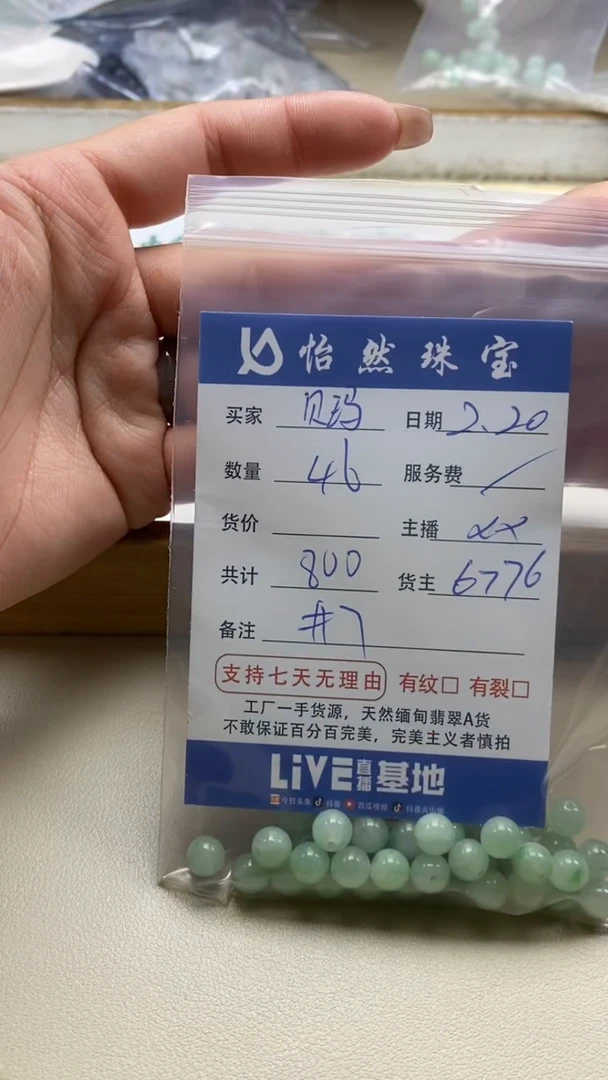 怡然珠宝
买家 贝玛 日期 2.20
数量 46 服务费 /
货价 主播
共计 800 货主 6776
备注 #7
支持七天无理由 有纹□ 有裂□
工厂一手货源，天然缅甸翡翠A货
不敢保证百分百完美，完美主义者慎拍
LiVE直播基地
今日头条 抖音 西瓜视频 抖音火山版